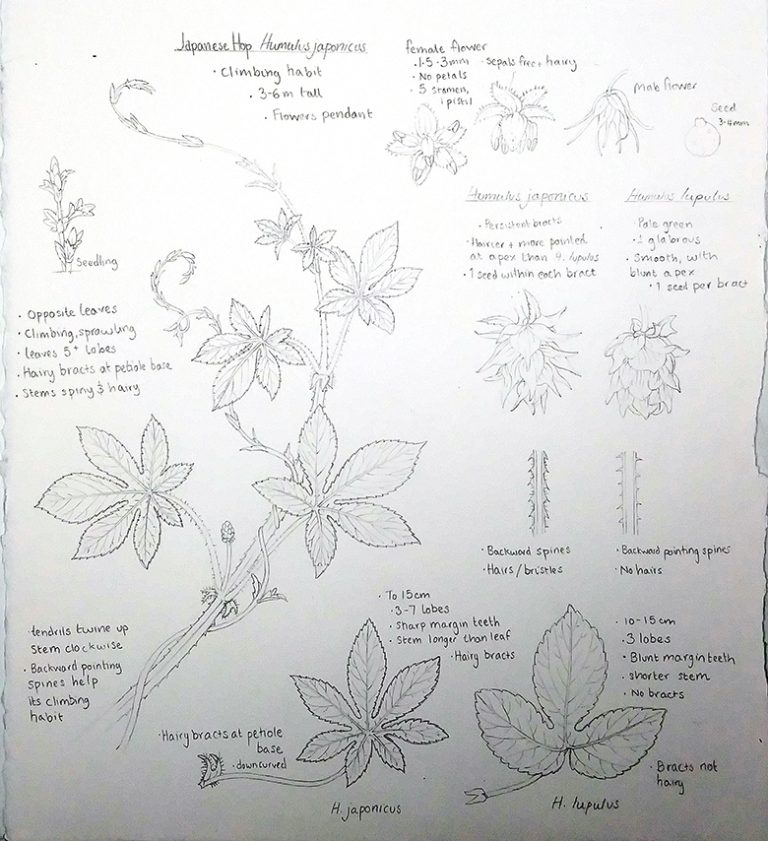 Japanese Hop Humulus japonicus
• Climbing habit
• 3-6m tall
• Flowers pendant
female flower
• 1.5-3mm
• No petals
• 5 stamen,
1 pistil
• sepals free + hairy
male flower
Seed
3-4mm
Seedling
Humulus japonicus
• Persistent bracts
• Hairier + more pointed
at apex than H. lupulus
• 1 seed within each bract
Humulus lupulus
• Pale green
• ± glabrous
• Smooth, with
blunt apex
• 1 seed per bract
• Opposite leaves
• Climbing, sprawling
• leaves 5+ lobes
• Hairy bracts at petiole base
• Stems spiny & hairy
• Backward spines
• Hairs / bristles
• Backward pointing spines
• No hairs
• tendrils twine up
Stem clockwise
• Backward pointing
spines help
its climbing
habit
• To 15cm
• 3-7 lobes
• Sharp margin teeth
• Stem longer than leaf
• Hairy bracts
• 10-15cm
• 3 lobes
• Blunt margin teeth
• shorter stem
• No bracts
• Hairy bracts at petiole
base
• downcurved
H. japonicus
H. lupulus
• Bracts not
hairy